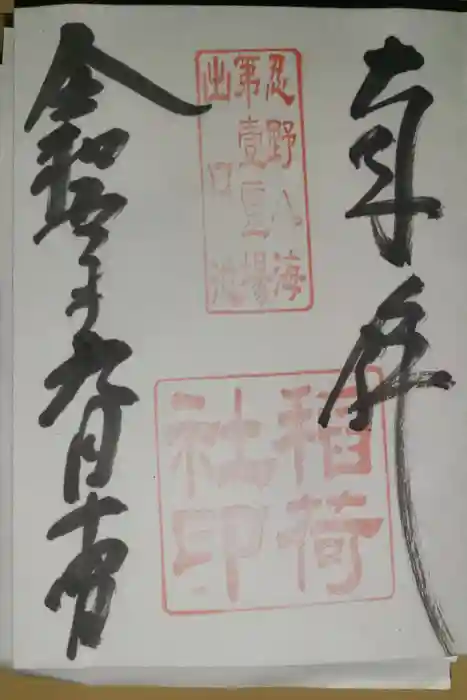 奉拝
忍野八海
第壹霊場
出口池
稲荷
社印
令和五年九月十